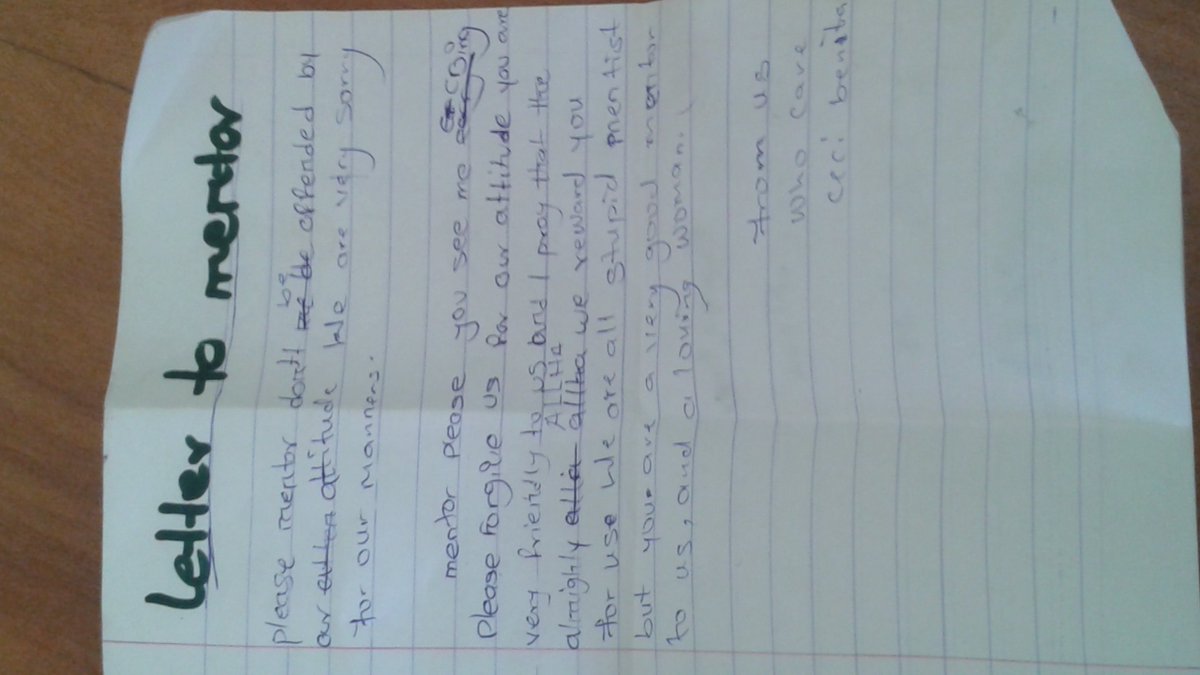 Letter to mentor
please mentor don't be offended by
our attitude We are very sorry
for our manners.
mentor please you see me crying
Please Forgive us for our attitude you are
very friendly to us and I pray that the
almighty ALLHA we reward you
for use We are all stupid mentist
but your are a very good mentor
to us, and a loving woman.,
from us
who care
ceci benita